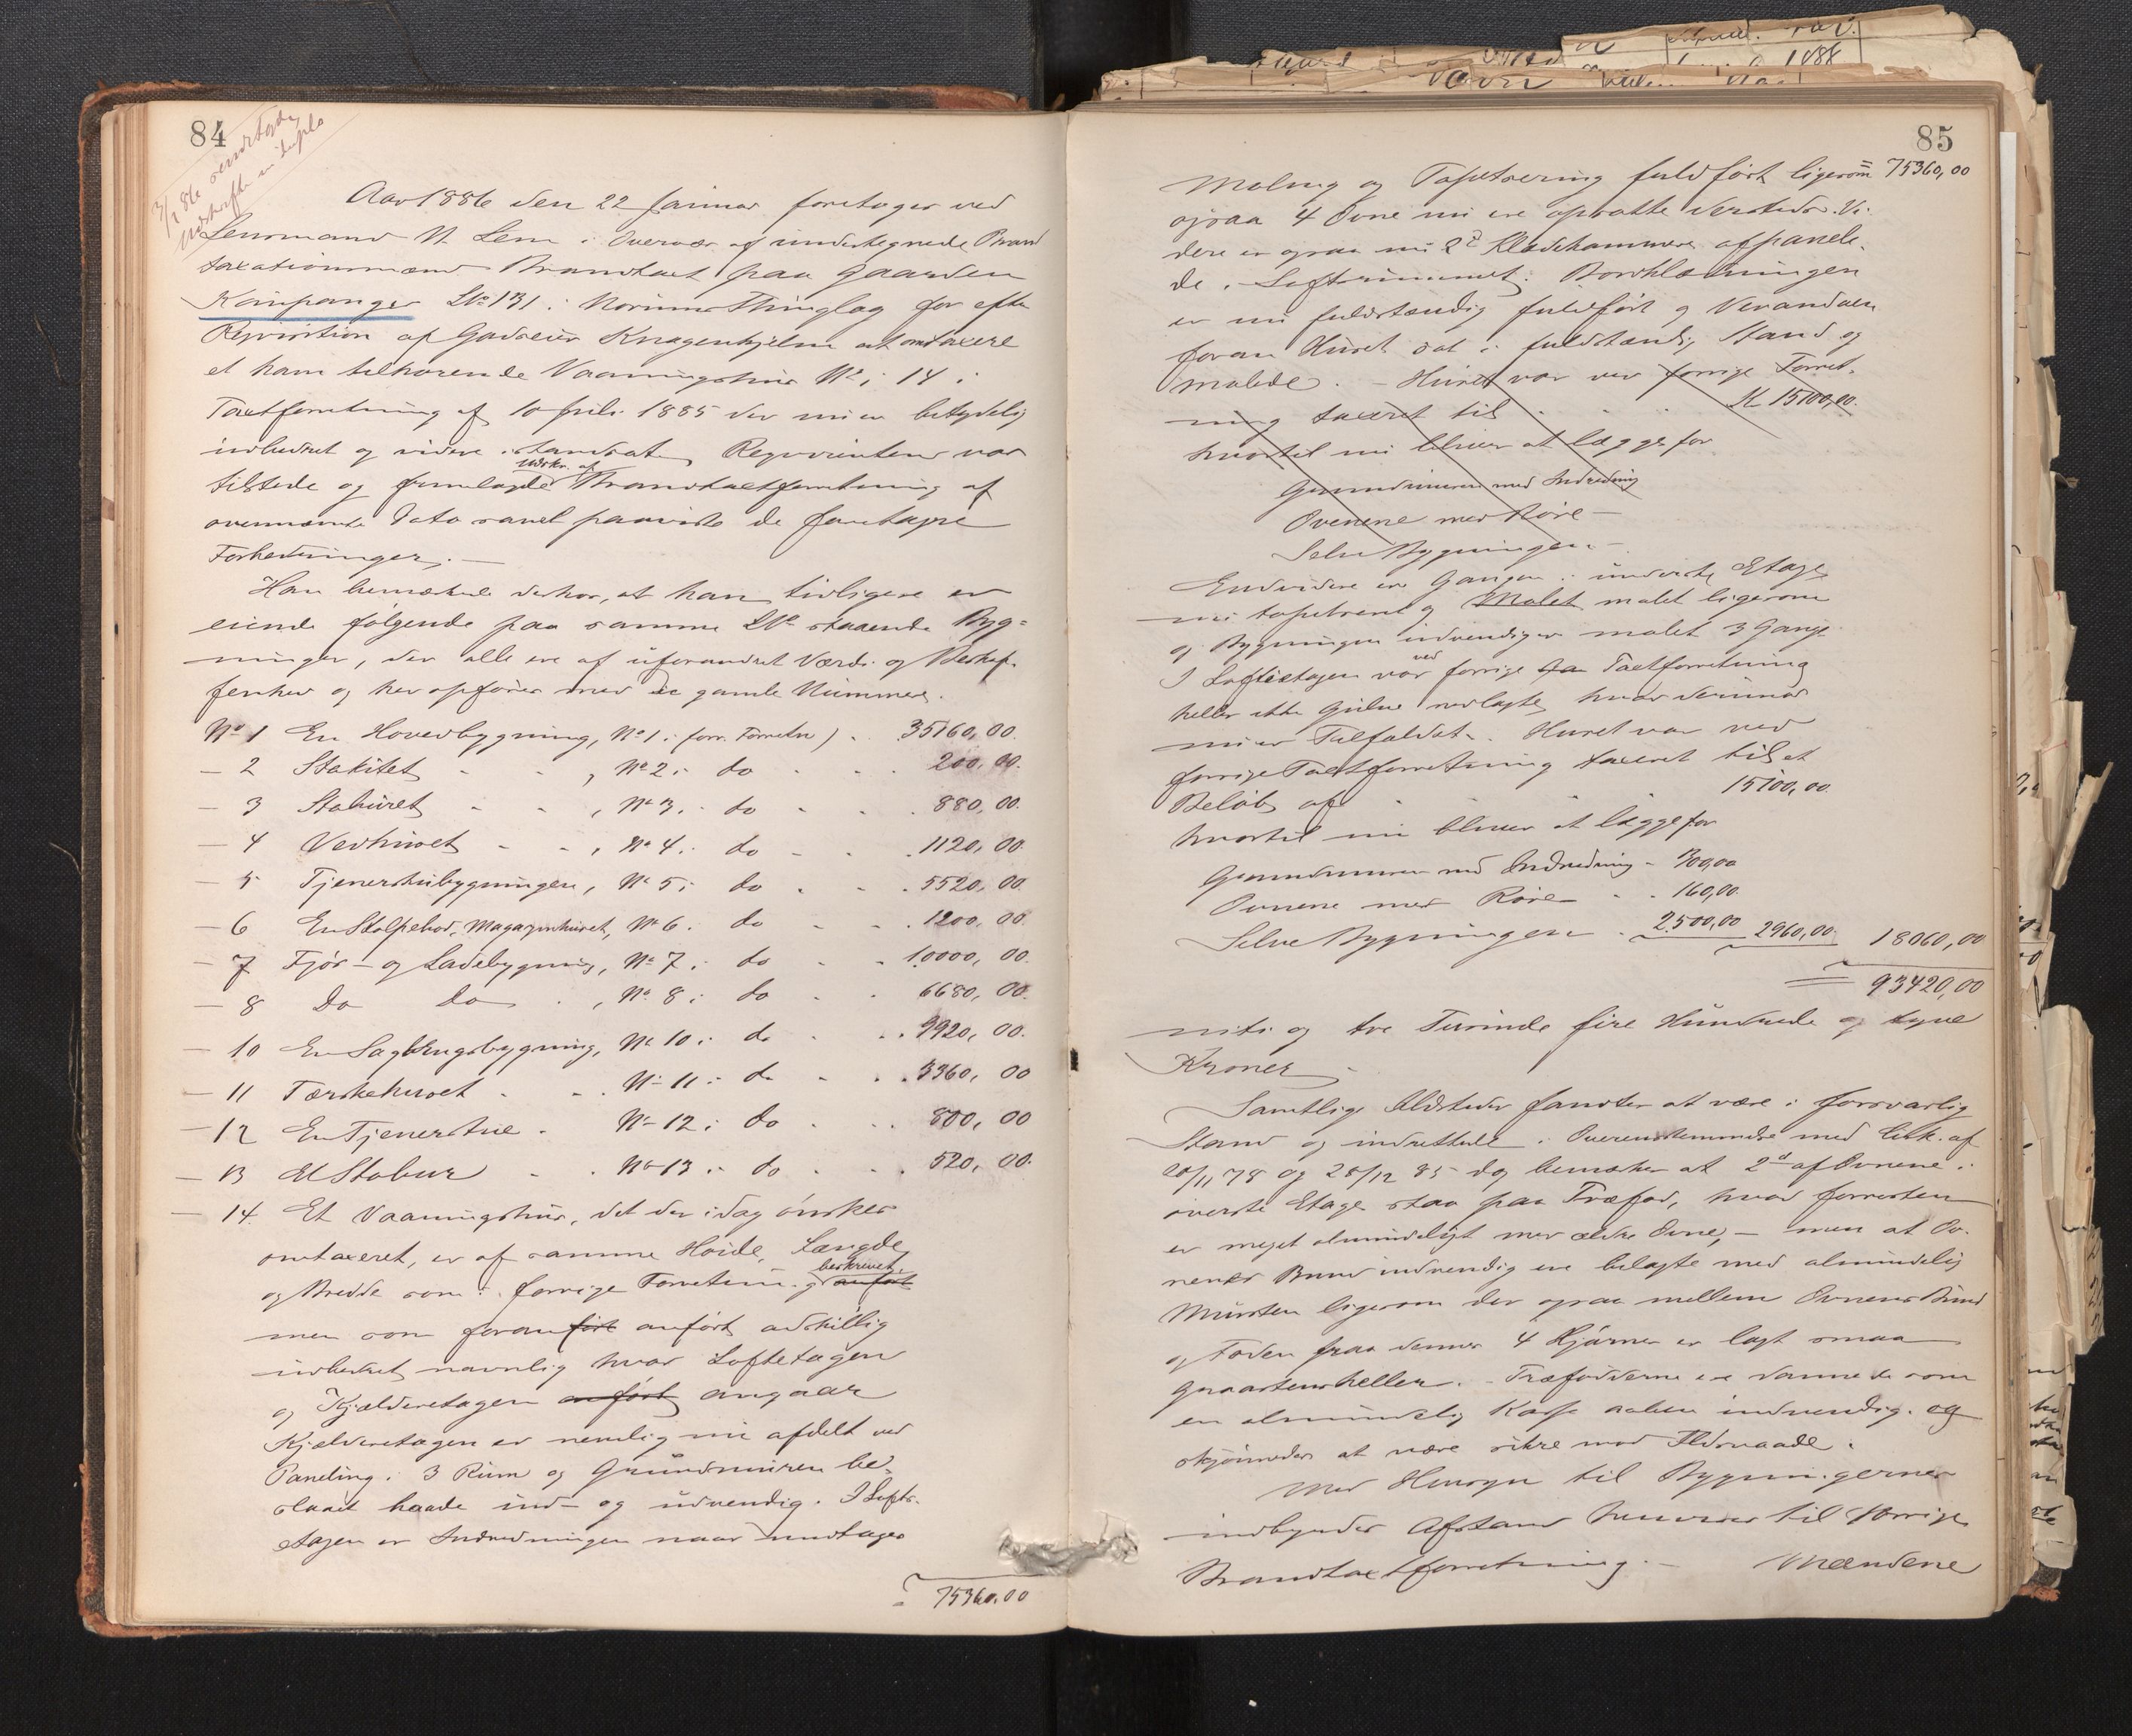 84
3/2 86 sendt Tvende
Udskrifter in duplo
Aar 1886 den 22 Januar foretoges ved
Lensmand N. Lem i Overvær af undertegnede Brand
taxationsmænd Brandtaxt paa Gaarden
Kaupanger LNo 131 i Norums Thinglag for efter
Reqvisition af Godseier Knagenhjelm at omtaxere
et ham tilhørende Vaaningshus No 14 i
Taxtforretning af 10 Juli 1885 der nu er betydelig
udbedret og videre istandsat. Reqvirenten var
tilstede og fremlagde Udskr. af Brandtaxtforretning af
ovennævnte Dato samt paaviste de foretagne
Forbedringer. —
Han bemærkede derhos, at han tidligere er
eiende følgende paa samme LNo staaende Byg=
ninger, der alle ere af uforandret Værdi og Beskaf-
fenhed og her opføres med de gamle Nummere.
No 1 En Hovedbygning, No 1 i forr. Forretn) . 35160,00.
— 2 Stakitet - - , No 2 i do . . 200,00.
— 3 Stabüret - - , No 3 i do . . 880,00.
— 4 Vedhüset - - , No 4 i do - . 1120,00.
— 5 Tjenerskabygningen, No 5 i do . . 5520,00.
— 6 En Stolpebod, Magazinhüset, No 6 i do . . 1200,00.
— 7 Fjøs- og Ladebygning, No 7 i do - - 10000,00.
— 8 Do do . , No 8 i do . . 6680,00.
— 10 En Sagbrugsbygning, No 10 i do . . 9920,00.
— 11 Tærskehuset . . No 11 i do - . 3360,00
— 12 En Tjenerstue . No 12 i do . . 800,00
— 13 Et Stabur - . No 13 i do . . 520,00.
— 14. Et Vaaningshus, det der i dag ønskes
omtaxeret, er af samme Høide, Længde
og Bredde som i forrige Forretning anført beskrevet.
men som foranført anført adskillig
udbedret navnlig hvad Loftetagen
og Kjælderetagen anført angaar
Kjælderetagen er nemlig nu afdelt ved
Paneling i 3 Rum og Grundmüren be-
slaaet baade ind- og udvendig. I Lofts-
etagen er Indredningen naar undtages
75360.00
85
Maling og Tapetsering fuldført ligesom = 75360,00
ogsaa 4 Ovne nu ere opsatte dersteds. Vi-
dere er ogsaa nu 2de Klædekammere afpanele-
de i Loftsrummet. Bordklædningen
er nu fuldstændig fuldført og Verandaen
foran Huset sat i fuldstændig Stand og
malede. — Huset var ved forrige Forret-
ning taxeret til . . . K 15100,00.
hvortil nu bliver at lægge for
Grundmuren med Indredning
Ovnene med Røre —
Selve Bygningen —
Endvidere ere Gangen i underste Etage
nu tapetseret og Malet malet ligesom
og Bygningen udvendig er malet 3 Gange
I Loftsetagen var ved forrige Taxtforretning
heller ikke Gulve nedlagte, hvad derimod
nu er Tilfældet. Huset var ved
forrige Taxtforretning taxeret til et
Beløb af . . . 15100,00.
hvortil nu bliver at lægge for
Grundmuren med Indredning - 300,00
Ovnene med Røre - . 160,00.
Selve Bygningen . 2500,00 2960,00. 18060,00
= 93420,00
niti og tre Tusinde fire Hundrede og tyve
Kroner
Samtlige Ildsteder fandtes at være i forsvarlig
Stand og indrettede i Overensstemmelse med Cirk. af
20/11 78 og 28/12 85 dog bemærkes at 2de af Ovnene i
øverste Etage staa paa Træfod, hvad forresten
er meget almindeligt med ældre Ovne, — men at Ov-
nenes Bund indvendig ere belagte med almindelig
Mursten ligesom der ogsaa mellem Ovnens Bund
og Foden paa dennes 4 Hjørner er lagt smaa
Graastensheller. — Træfødderne ere dannede som
en almindelig Kasse aaben indvendig. og
skjønnedes at være sikre mod Ildsvaade.
Med Hensyn til Bygningernes
indbyrdes Afstand henvises til forrige
Brandtaxtforretning. — Mændene